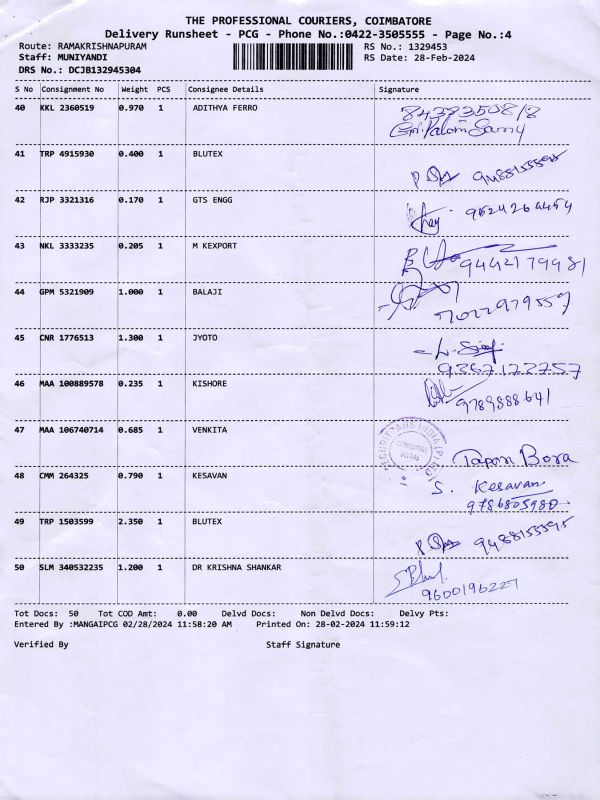 THE PROFESSIONAL COURIERS, COIMBATORE
Delivery Runsheet - PCG - Phone No.:0422-3505555 - Page No.:4
Route: RAMAKRISHNAPURAM RS No.: 1329453
Staff: MUNIYANDI RS Date: 28-Feb-2024
DRS No.: DCJB132945304
S No Consignment No Weight PCS Consignee Details Signature
40 KKL 2360519 0.970 1 ADITHYA FERRO
41 TRP 4915930 0.400 1 BLUTEX
42 RJP 3321316 0.170 1 GTS ENGG
43 NKL 3333235 0.205 1 M KEXPORT
9442179981
44 GPM 5321909 1.000 1 BALAJI
45 CNR 1776513 1.300 1 JYOTO
9367122757
46 MAA 100889578 0.235 1 KISHORE
9789888641
47 MAA 106740714 0.685 1 VENKITA
Tapan Bora
48 CMM 264325 0.790 1 KESAVAN S. Kesavan
9786805980
49 TRP 1503599 2.350 1 BLUTEX
9488155595
50 SLM 340532235 1.200 1 DR KRISHNA SHANKAR
9600196227
Tot Docs: 50 Tot COD Amt: 0.00 Delvd Docs: Non Delvd Docs: Delvy Pts:
Entered By :MANGAIPCG 02/28/2024 11:58:20 AM Printed On: 28-02-2024 11:59:12
Verified By Staff Signature